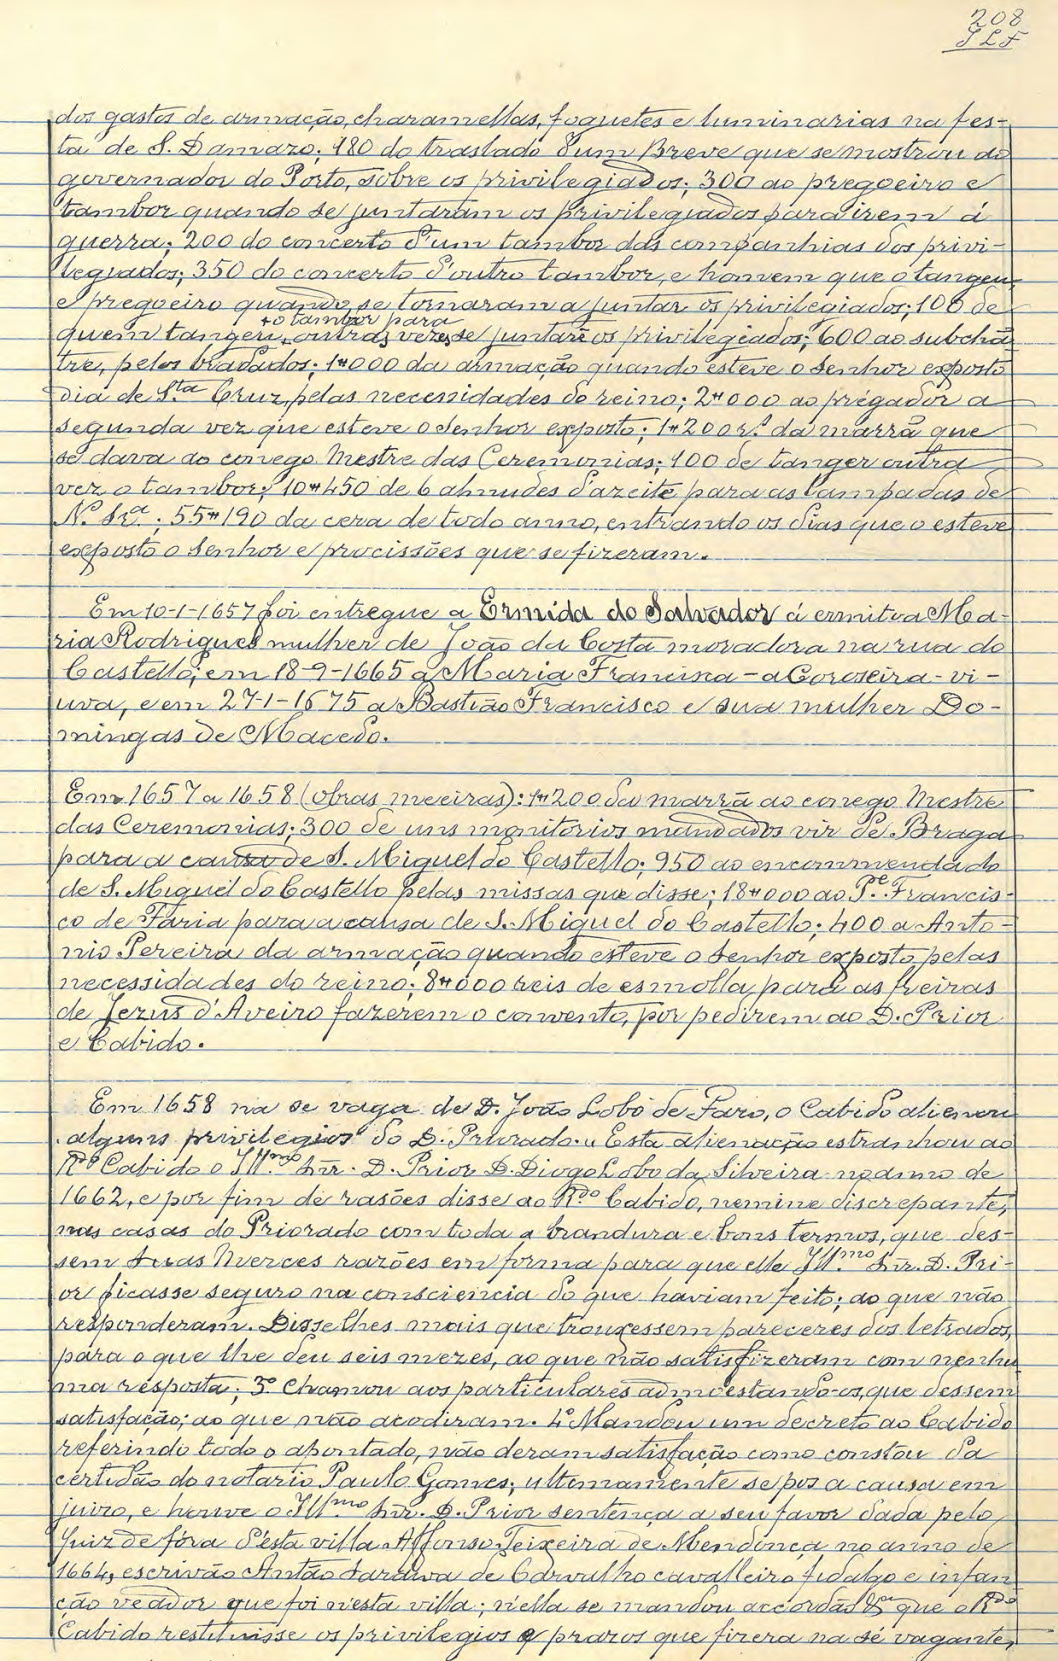 208
JLF
dos gastos de armação, charamellas, foguetes e luminarias na fes-
ta de S. Damazo; 180 do traslado d'um Breve que se mostrou ao
governador do Porto, sôbre os privilegiados; 300 ao pregoeiro e
tambor quando se juntaram os privilegiados para irem á
guerra; 200 do concerto d'um tambor das companhias dos privi-
legiados; 350 do concerto d'outro tambor, e homem que o tangeu
e pregoeiro quando se tornaram a juntar os privilegiados; 100 de
+ o tambor para
quem tangeu + outras vezes se juntarẽ os privilegiados; 600 ao subchã
tre, pelos bradados; 1#000 da armação quando esteve o Senhor exposto
dia de S.ta Cruz, pelas necessidades do reino; 2#000 ao prégador a
segunda vez que esteve o Senhor exposto; 1#200 r.s da marrã que
se dava ao conego Mestre das Ceremonias; 100 de tanger outra
vez o tambor; 10#450 de 6 almudes d'azeite para as lampadas de
N.ª Sr.ª. 55#190 da cera de todo anno, entrando os dias que o esteve
exposto o Senhor e procissões que se fizeram.
Em 10-1-1657 foi entregue a Ermida do Salvador á ermitoa Ma-
ria Rodrigues mulher de João da Costa moradora na rua do
Castello; em 18-9-1665 a Maria Francisca - a Coroseira - vi-
uva, e em 27-1-1675 a Bastião Francisco e sua mulher Do-
mingas de Macedo.
Em 1657 a 1658 (obras meeiras): 1#200 da marrã ao conego Mestre
das Ceremonias; 300 de uns monitorios mandados vir de Braga
para a causa de S. Miguel do Castello; 950 ao encommendado
de S. Miguel do Castello pelas missas que disse; 18#000 ao P.e Francis-
co de Faria para a causa de S. Miguel do Castello; 400 a Anto-
nio Pereira da armação quando esteve o Senhor exposto pelas
necessidades do reino; 8#000 reis de esmolla, para as freiras
de Jezus d'Aveiro fazerem o convento, por pedirem ao D. Prior
e Cabido.
Em 1658 na se vaga de D. João Lobo de Faro, o Cabido alienou
alguns privilegios do D. Priorado. Esta alienação estranhou ao
R.do Cabido o Ill.mo Snr. D. Prior D. Diogo Lobo da Silveira no anno de
1662, e por fim de rasões disse ao R.do Cabido, nemine discrepante,
nas casas do Priorado com toda a brandura e bons termos, que des-
sem suas Merces razões em forma para que elle Ill.mo Snr. D. Pri-
or ficasse seguro na consciencia do que haviam feito; ao que não
responderam. Disse lhes mais que trouxessem pareceres dos letrados,
para o que lhe deu seis mezes, ao que não satisfizeram com nenhu
ma resposta; 3º Chamou aos particulares admoestando-os, que dessem
satisfação; ao que não acodiram. 4º Mandou um decreto ao Cabido
referindo todo o apontado, não deram satisfação como constou da
certidão do notario Paulo Gomes; ultemamente se poz a causa em
juizo, e houve o Ill.mo Snr. D. Prior sentença a seu favor dada pelo
Juiz de fóra d'esta villa Affonso Teixeira de Mendonça no anno de
1664, escrivão Antão Saraiva de Carvalho cavalleiro fidalgo e infan
ção veador que foi n'esta villa; n'ella se mandou que o R.do
Cabido restituisse os privilegios e prazos que fizera na sé vagante,